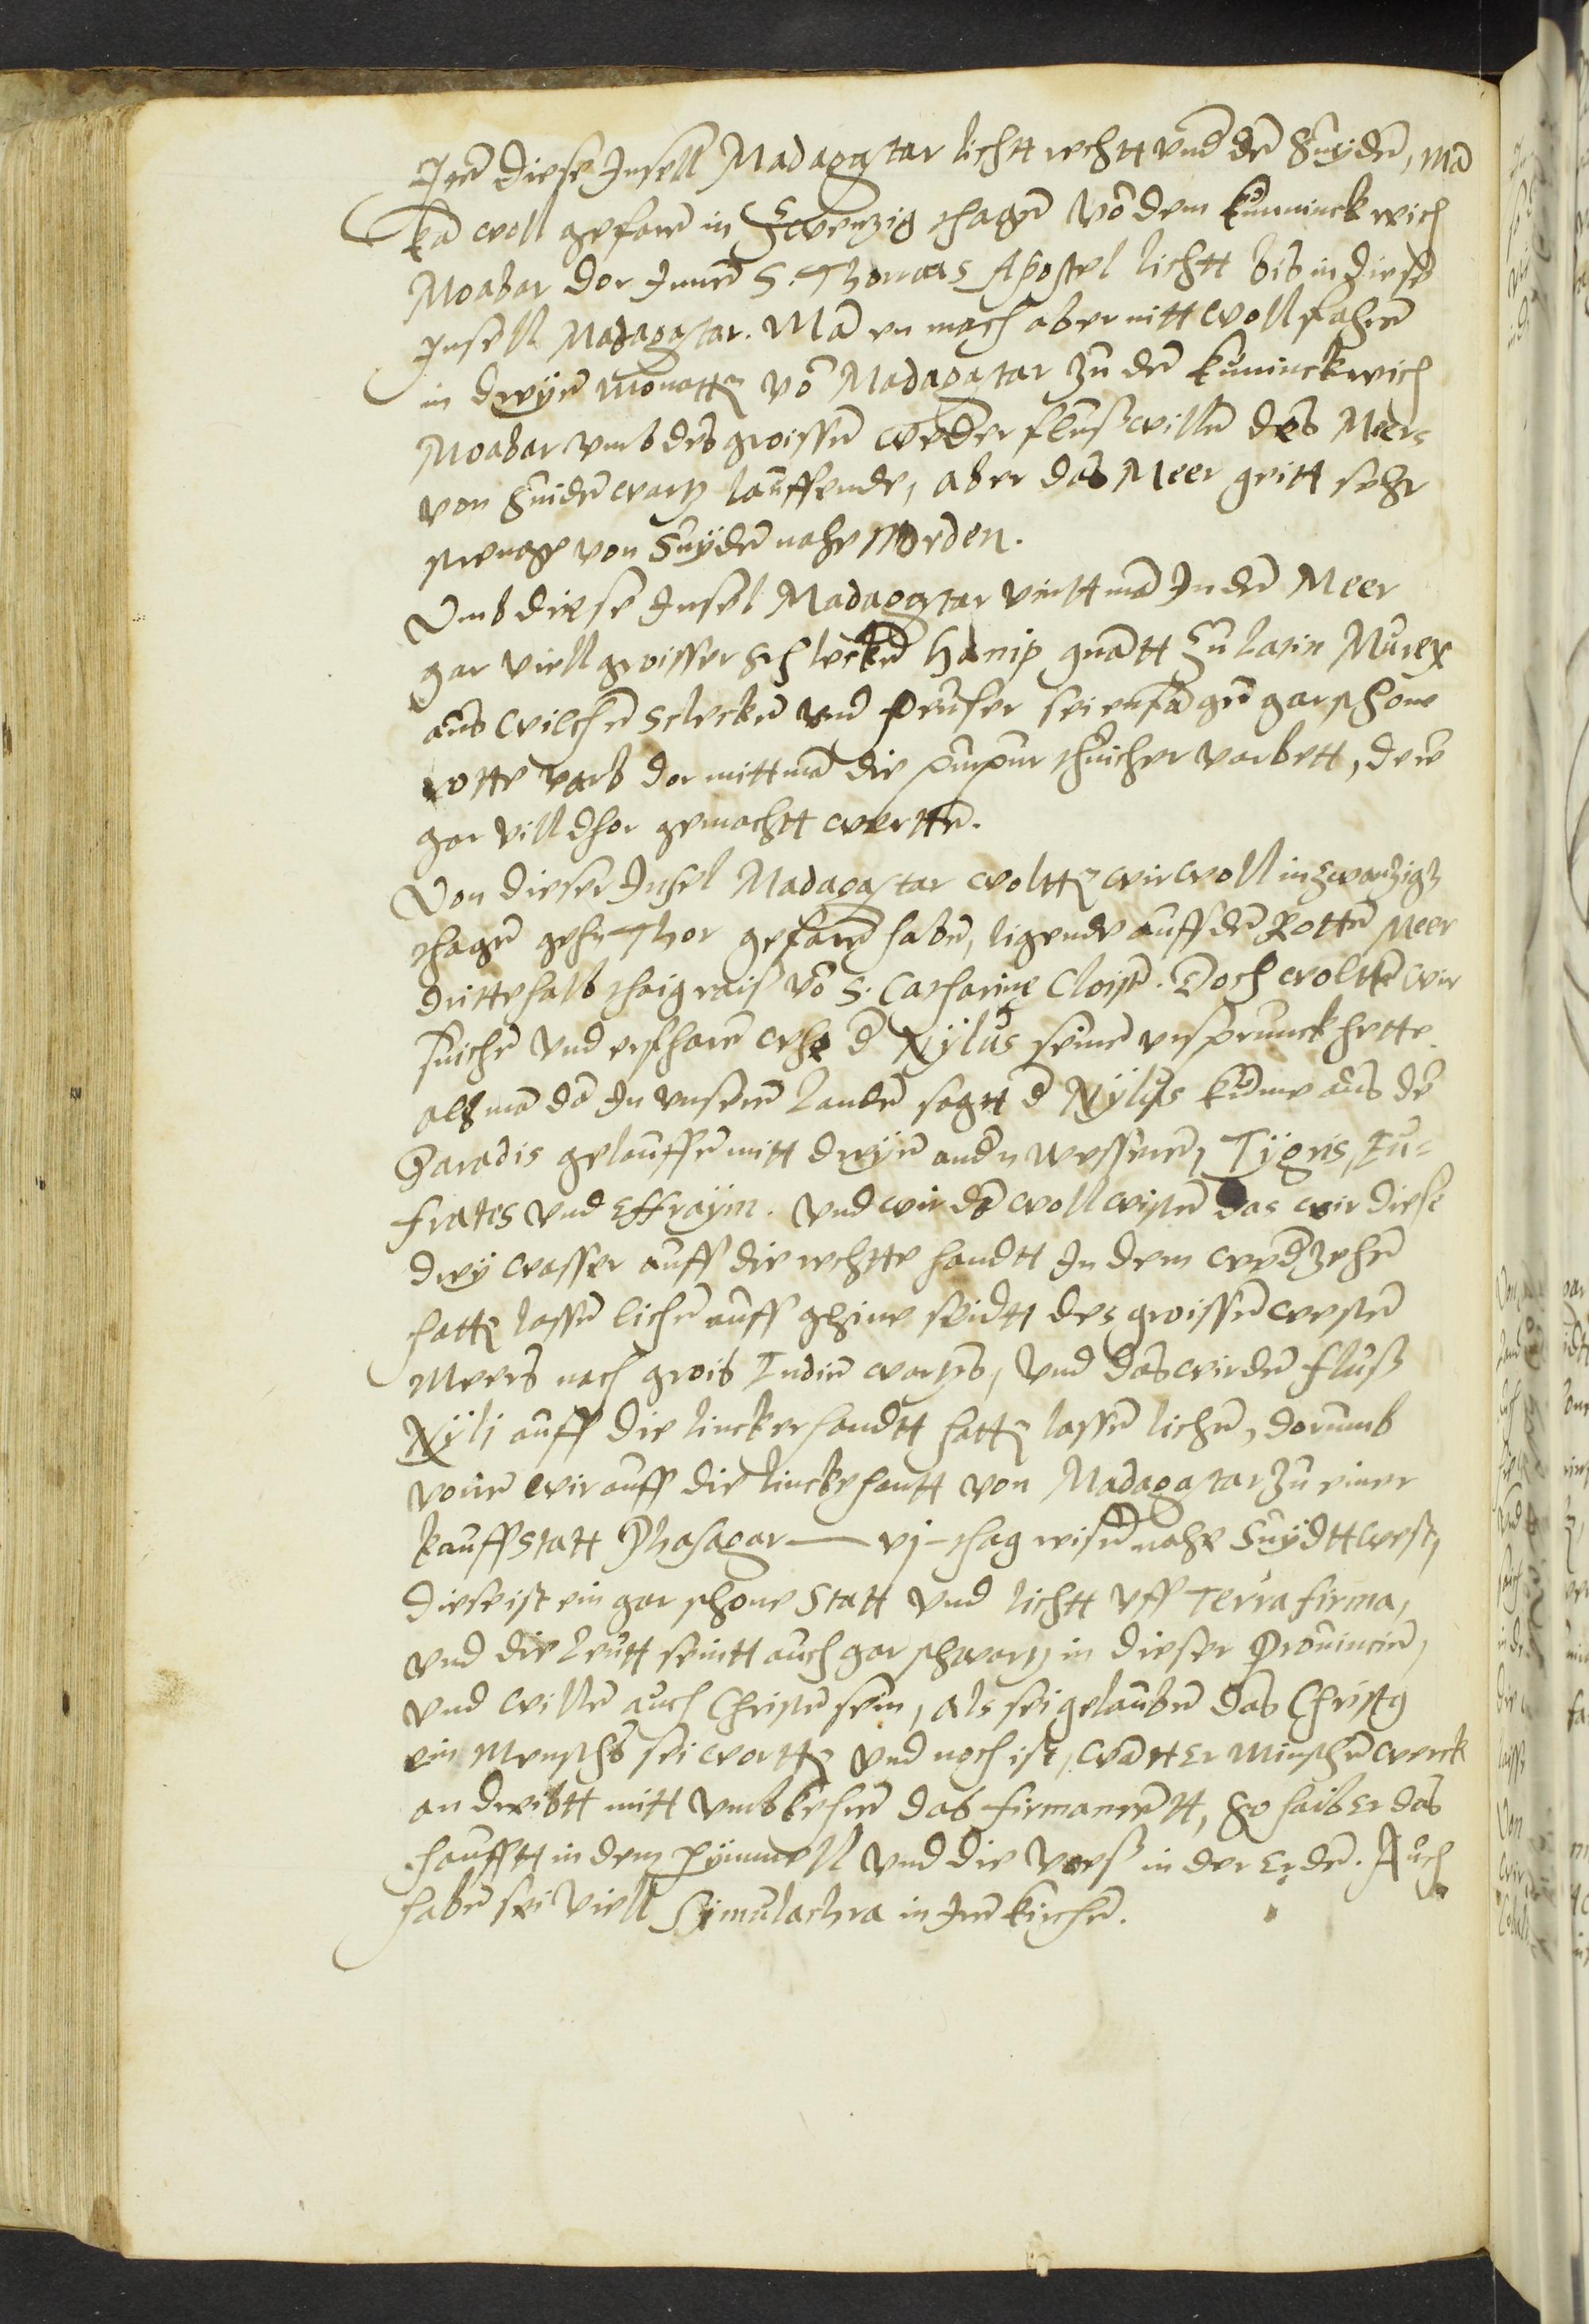 Item diese Insell Madagastar lichtt rechtt vnd dē Suydē, mā
kā woll gefarē in Zwenzig thagē vō dem kunninckreich
Moabar dar Innē S. Thomas Apostel lichtt bis in diese
Insell Madagastar. Mā en mach aber nitt woll fahrē
in dryē monattē vō Madagastar zu dē kuninckreich
Moabar vmb des groissē wederfluß willē des Meers
von Suidē wartz lauffende, aber das Meer geitt sehr
strenge von Suydē nahe Norden.
Vmb diese Insel Madagastar vintt mā In dē Meer
gar viell groisser schleckē Hanip gnātt zu latin Murex
aus wilchē scleckē vnd heuser sei enfāgē gar schone
rotte varb dar mitt mā die purpur thuicher varbett, derē
gar vill dhar gemachtt werttē.
Von dieser Insel Madagastar woltē wir woll in zwanzigē
thagē gehn Thor gefarē habē, ligende auff dē Rottē Meer
drittehalb thaigreis vō S. Catharinē Cloister. Doch woltē wir
suichē vnd erfharē whe d Nylus seinē vrsprunck hette
als mā dā In vnserē landē sagtt d Nylus kume aus dē
Paradis gelauffē mitt dryē andn wesserē, Tygris, Eu=
frates vnd Effraym. vnd wir dā woll wistē das wir diese
dry wasser auff die rechtte handtt In dem
hattē lassē lichē auff ghine seidtt des groissē westē
Meers nach grois Indiē wartzs, vnd das wir dē fluß
Nyli auff die lincker handtt hattē lassē lichē, darumb
vorē wir auff die lincke hantt von Madagastar zu einer
kauffstatt Phasagar — vj – thag reisē nahe Suydtt west,
diese ist ein gar schone Statt vnd lichtt vff Terra firma,
vnd die leutt seintt auch gar schwartz in dieser Prouincie,
vnd willē auch Christē sein, als sei gelaubē das Christus
ein Menschs sei wordē vnd noch ist, wātt Er Minschē werck
an dreibtt mitt vmbkehrē das firmamētt, So haib Er das
heufftt in dem hymmell vnd die voes in der Erdē. Auch
habē sei viell Simulachra in Irē kirchē.